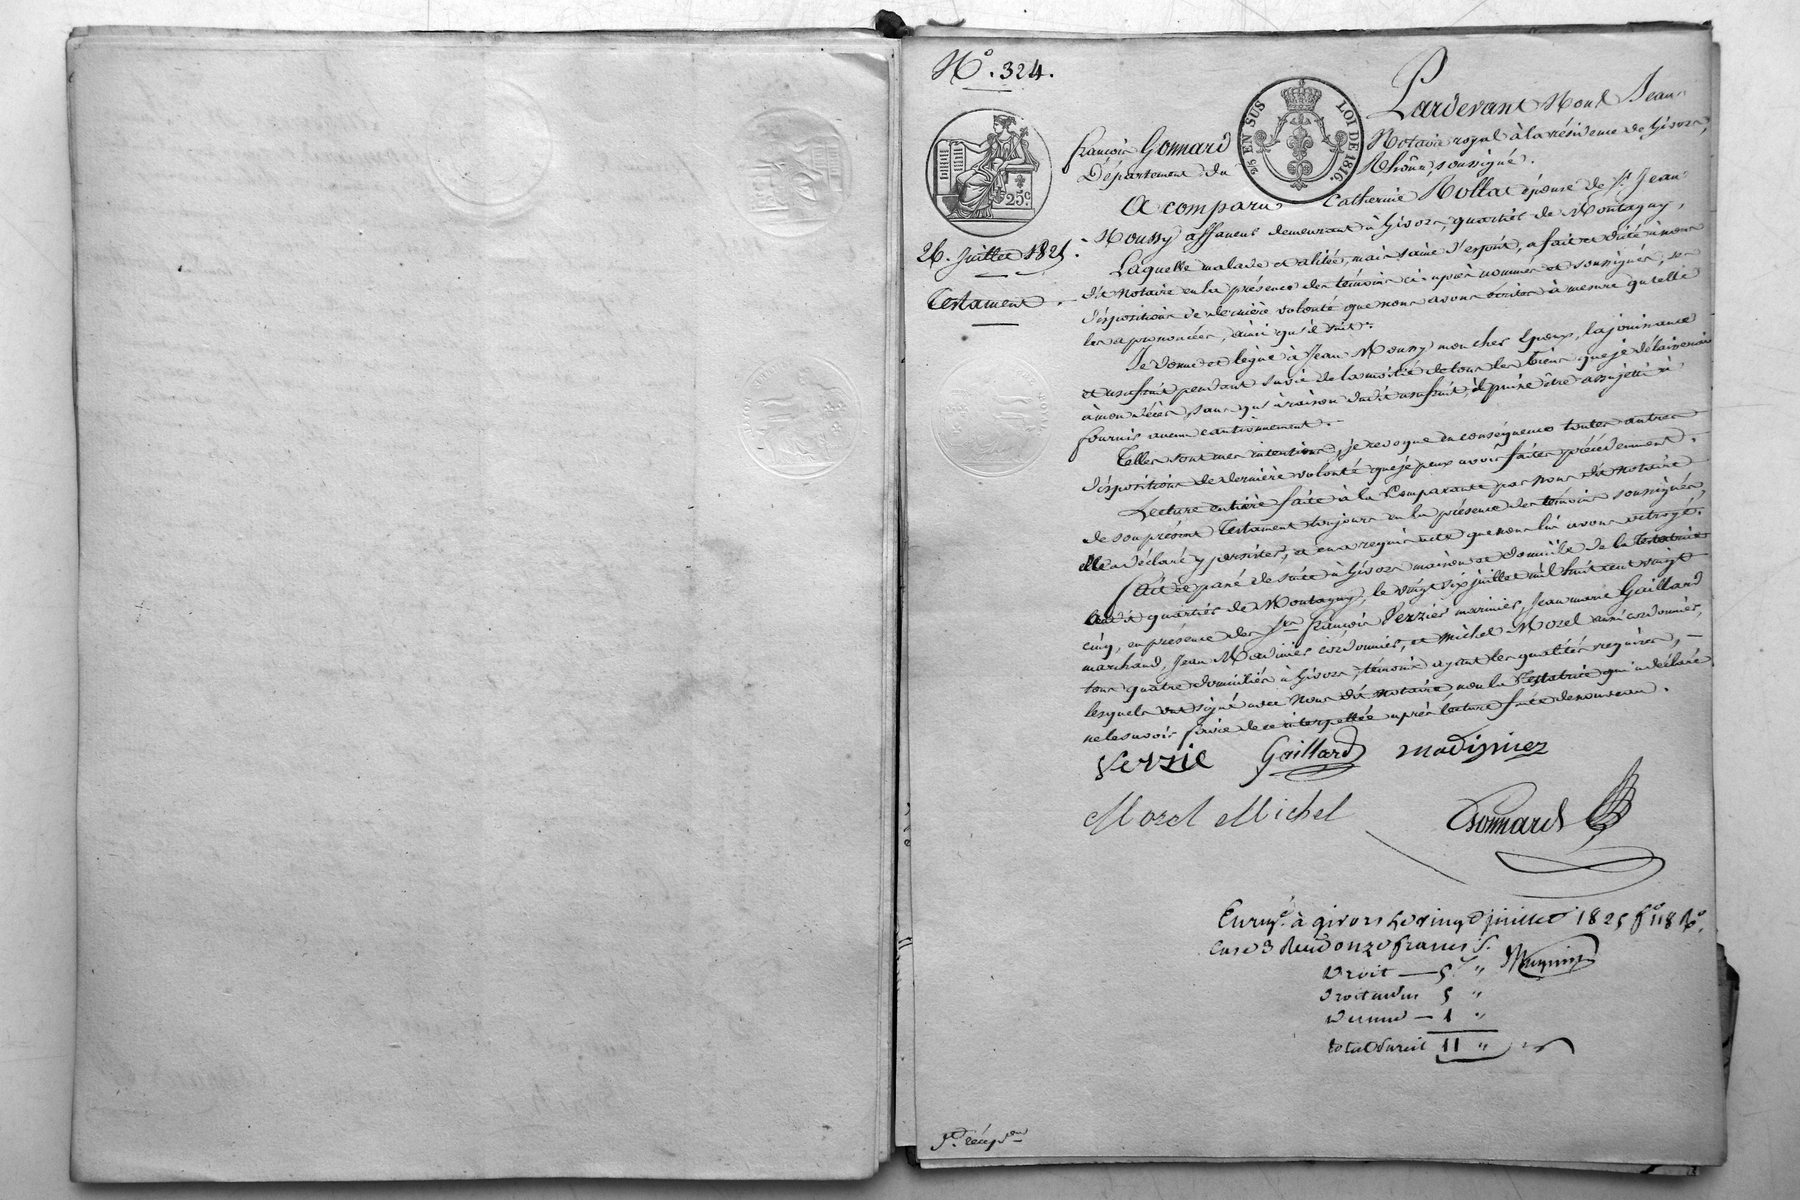 N.° 324.
Pardevant Nous Jean
françois Gonnard Notaire royal à la résidence de Givors,
Département du Rhône, soussigné.
25 EN SUS LOI DE 1816
25c
A comparu Catherine épouse de Sr. Jean
Moussy affaneur demeurant à Givors, quartier de Montagny,
26. Juillet 1825.
Testament.
Laquelle malade et alitée, mais saine d'esprit, a fait et dicté à nous
dit notaire en la présence des témoins ci-après nommés et soussignés, ses
dispositions de dernière volonté que nous avons écrites à mesure qu'elle
les a prononcées, ainsi qu'il suit:
Je donne et lègue à Jean Moussy mon cher époux, la jouissance
et usufruit pendant sa vie de la moitié de tous les biens que je délaisserai
à mon décès, sans qu'à raison dudit usufruit, il puisse être assujetti à
fournir aucun cautionnement.
Telles sont mes intentions, je révoque en conséquence toutes autres
dispositions de dernière volonté que je peux avoir faites précédemment.
Lecture entière faite à la Comparante par nous dit notaire
de son présent Testament toujours en la présence des témoins soussignés,
elle a déclaré y persister, et en a requis acte que nous lui avons octroyé.
Fait et passé de suite à Givors maison et domicile de la Testatrice
audit quartier de Montagny, le vingt six juillet mil huit cent vingt
cinq, en présence des Srs. françois Verzier marinier, Jean marie Gaillard
marchand, Jean Madinier cordonnier, et michel Morel aussi cordonnier,
tous quatre domiciliés à Givors, témoins ayant les qualités requises,
lesquels ont signé avec nous dit notaire non la Testatrice qui a déclaré
ne le savoir faire de ce interpellée après lecture faite de nouveau.
Verzie Gaillard madignier
Morel Michel Gonnard
Enregé. à givors le vingt juillet 1825 fo. 118 Ro.
Case 3 Reçu onze francs S.
Droit — 5 "
Droit en sus 5 "
Décime — 1 "
total du reçu 11 "